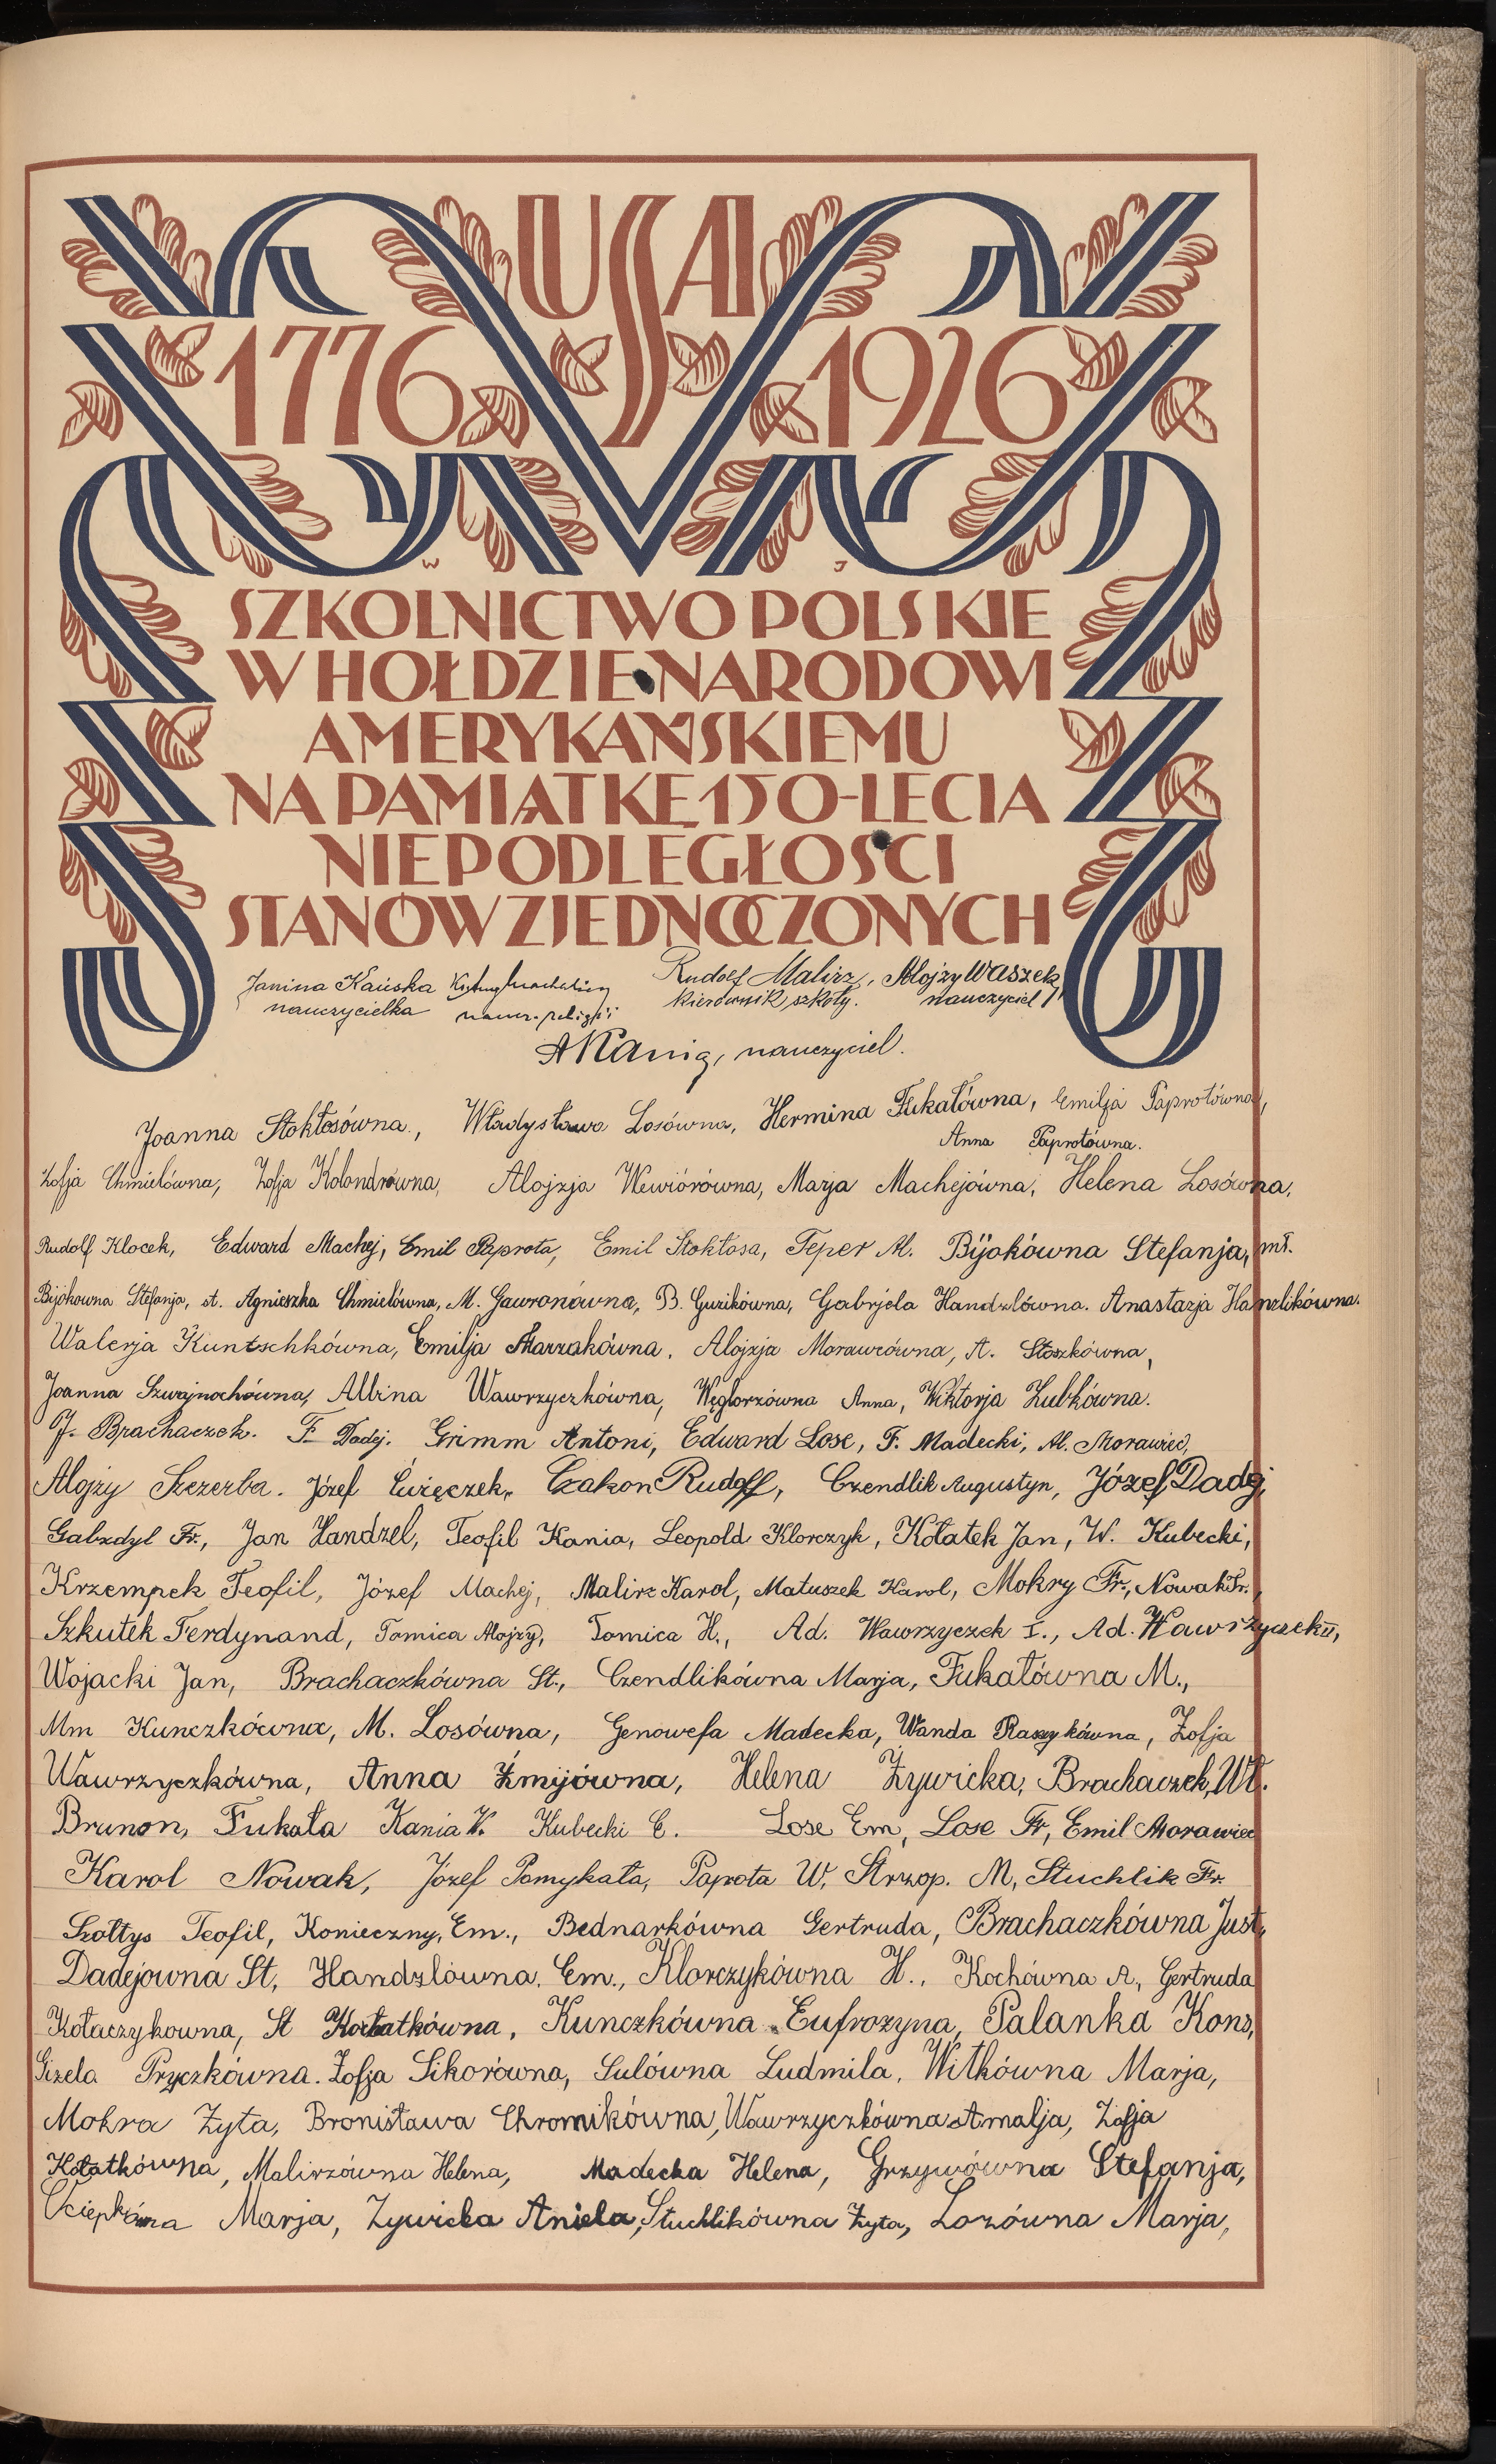 USA
1776 1926
W J
SZKOLNICTWO POLSKIE
W HOŁDZIE NARODOWI
AMERYKAŃSKIEMU
NA PAMIĄTKĘ 150-LECIA
NIEPODLEGŁOŚCI
STANÓW ZJEDNOCZONYCH
Janina Kańska Rudolf Malirz, Alojzy Waszek
nauczycielka naucz. religji kierownik szkoły. nauczyciel
A Kania, nauczyciel.
Joanna Stokłosówna, Władysława Losówna, Hermina Fukałówna, Emilja Paprotówna,
Anna Paprotówna.
Zofja Chmielówna, Zofja Kolondrówna, Alojzja Wewiórówna, Marja Machejówna, Helena Losówna,
Rudolf Klocek, Edward Machej, Emil Paprota, Emil Stokłosa, Teper Al. Bijokówna Stefanja, mł.
Bijokowna Stefanja, st. Agnieszka Chmielówna, M. Gawronówna, B. Guzikówna, Gabrjela Handzlówna. Anastazja Hanzlikówna.
Walerja Kuntschkówna, Emilja Marzakówna, Alojzja Morawcówna, A. Stoszkówna,
Joanna Szwajnochówna, Albina Wawrzyczkówna, Węglorzówna Anna, Wiktorja Zubkówna.
J. Brachaczek. F. Dadej. Grimm Antoni, Edward Lose, F. Madecki, Al. Morawiec,
Alojzy Szczerba. Józef Ćwięczek, Czakon Rudolf, Czendlik Augustyn, Józef Dadej,
Gabzdyl Fr., Jan Handzel, Teofil Kania, Leopold Klorczyk, Kołatek Jan, W. Kubecki,
Krzempek Teofil, Józef Machej, Malirz Karol, Matuszek Karol, Mokry Fr., Nowak Fr.,
Szkutek Ferdynand, Tomica Alojzy, Tomica H., Ad. Wawrzyczek I., Ad. Wawrzyczek II,
Wojacki Jan, Brachaczkówna St., Czendlikówna Marja, Fukałówna M.,
Mm Kunczkówna, M. Losówna, Genowefa Madecka, Wanda Raszykówna, Zofja
Wawrzyczkówna, Anna Żmijówna, Helena Żywicka, Brachaczek, Wł.
Brunon, Fukała Kania K. Kubecki E. Lose Em, Lose Fr, Emil Morawiec
Karol Nowak, Józef Pomykała, Paprota W, Strzop. M, Stuchlik Fr.
Szołtys Teofil, Konieczny, Em., Bednarkówna Gertruda, Brachaczkówna Just,
Dadejowna St, Handzlówna, Em., Klorczykówna H., Kochówna A, Gertruda
Kołaczykowna, St Kołatkówna, Kunczkówna Eufrozyna, Palanka Kons,
Gizela Pryczkówna. Zofja Sikorówna, Sulówna Ludmila, Witkówna Marja,
Mokra Zyta, Bronisława Chromikówna, Wawrzyczkówna Amalja, Zofja
Kołatkówna, Malirzówna Helena, Madecka Helena, Grzywówna Stefanja,
Marja, Zywicka Aniela, Stuchlikówna Zyta, Lozówna Marja,